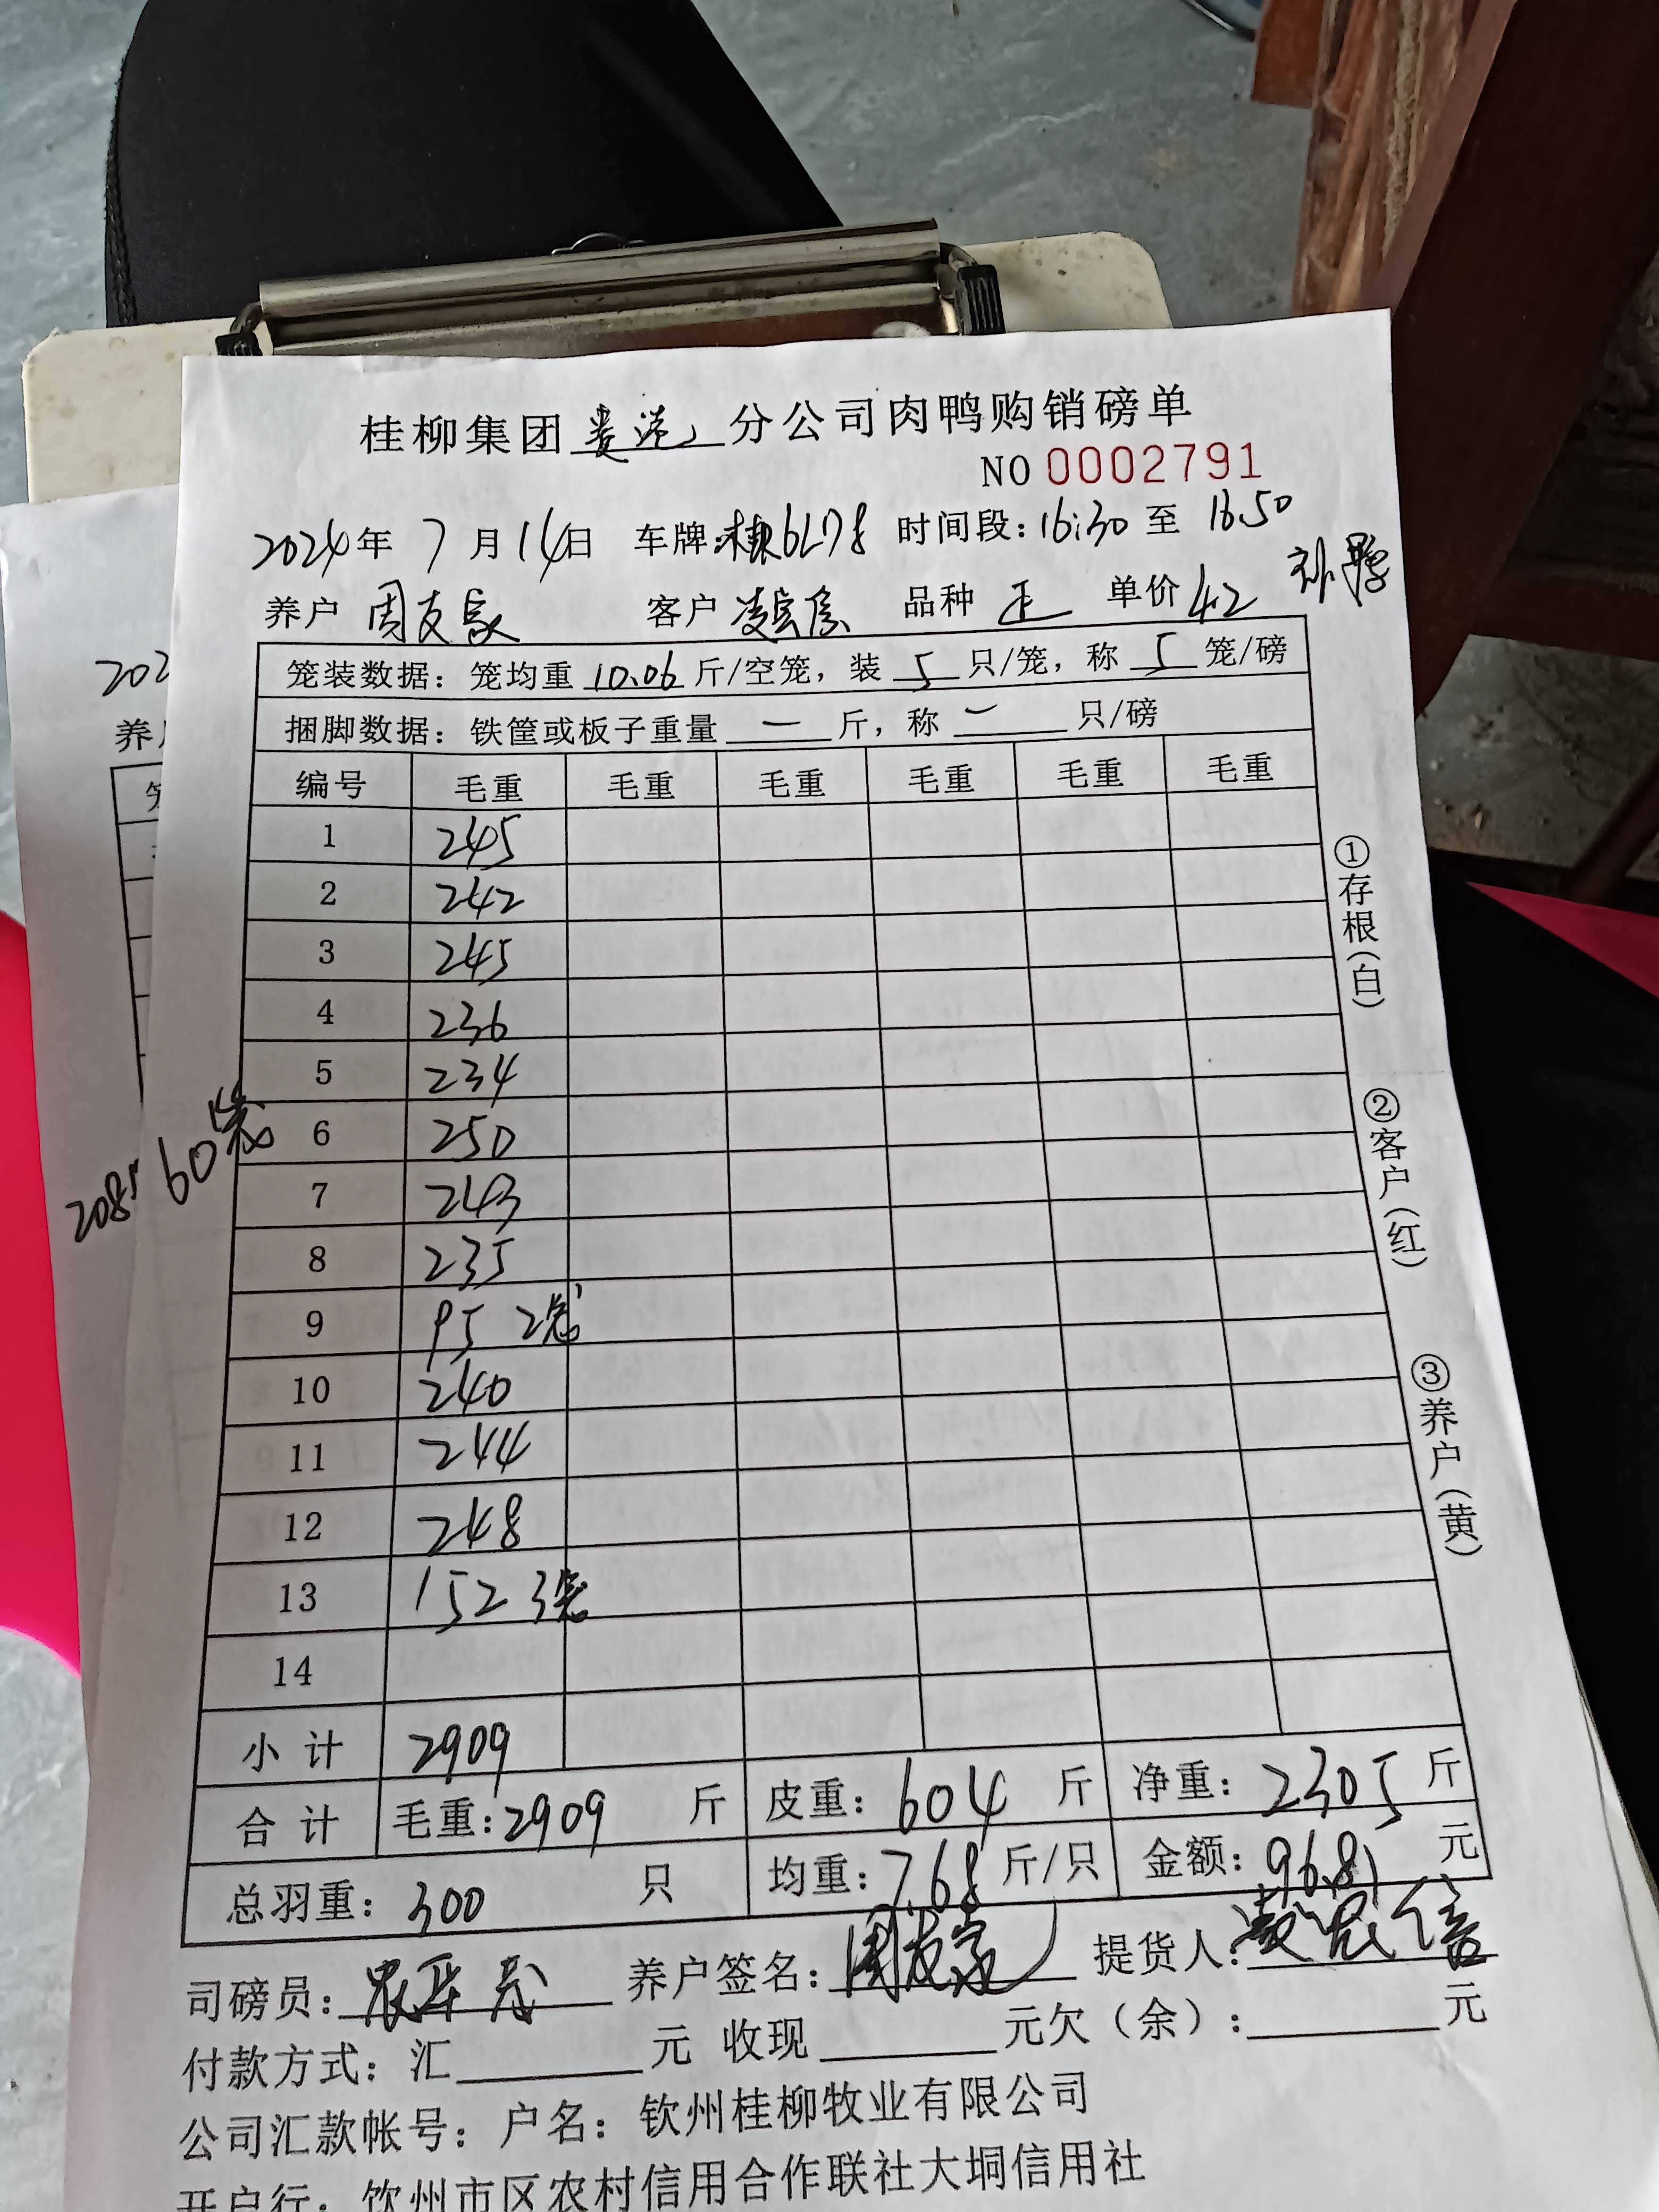 桂柳集团 分公司肉鸭购销磅单
NO 0002791
2024年 7 月 14日 车牌: 6L78 时间段: 16:30 至 16:50
养户 周友家 客户 品种 正 单价 4.2
笼装数据: 笼均重 10.06 斤/空笼, 装 5 只/笼, 称 5 笼/磅
捆脚数据: 铁筐或板子重量 一 斤, 称 一 只/磅
编号 毛重 毛重 毛重 毛重 毛重 毛重
1 245
2 242
3 245
4 236
5 234
208 60笼 6 250
7 243
8 235
9 95 2笼
10 240
11 244
12 248
13 152 3笼
14
小计 2909
合计 毛重: 2909 斤 皮重: 604 斤 净重: 2305 斤
总羽重: 300 只 均重: 7.68 斤/只 金额: 9681 元
①存根(白)
②客户(红)
③养户(黄)
司磅员: 养户签名: 周友家 提货人:
付款方式: 汇 元 收现 元欠(余): 元
公司汇款帐号: 户名: 钦州桂柳牧业有限公司
开户行: 钦州市区农村信用合作联社大垌信用社
202
养